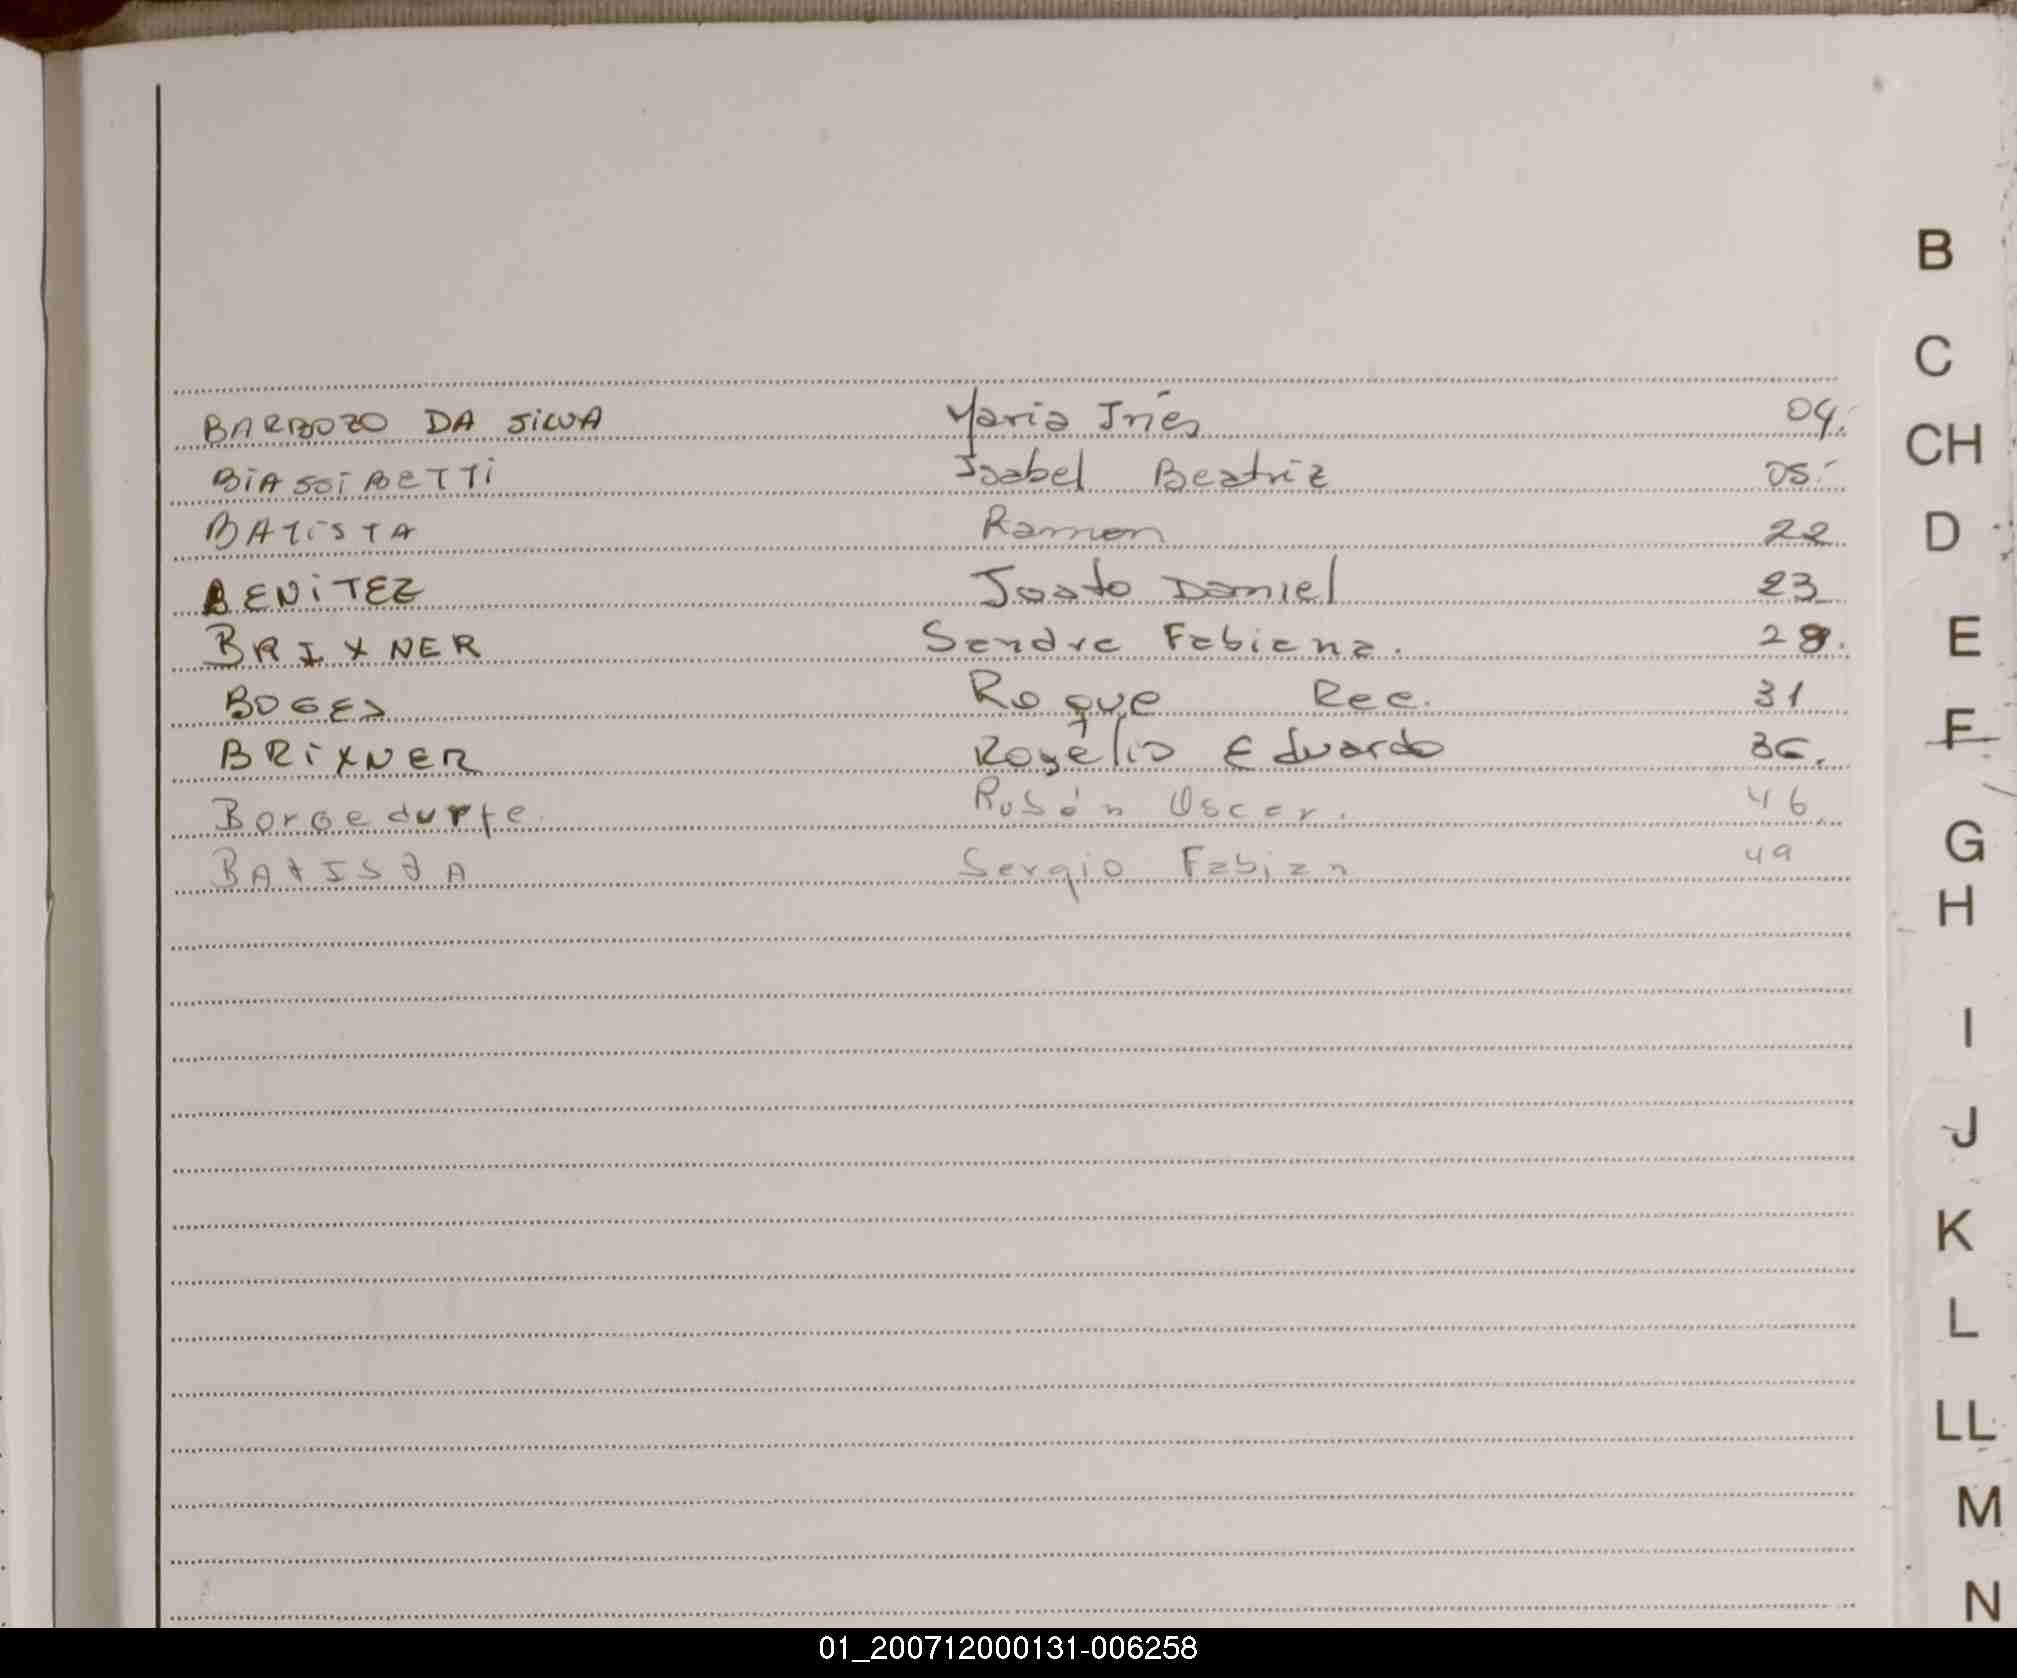 BARBOZO DA SILVA Maria Inés 04.
BIASSIBETTI Isabel Beatriz 05.
BATISTA Ramon 22
BENITEZ Daniel 23
BRIXNER Sandra Fabiana. 28.
BOGES Roque Rec. 31
BRIXNER Rogelio Eduardo 36.
Rubén Oscar. 46
BATISTA Sergio Fabian 49
B
C
CH
D
E
F
G
H
I
J
K
L
LL
M
N
01_200712000131-006258